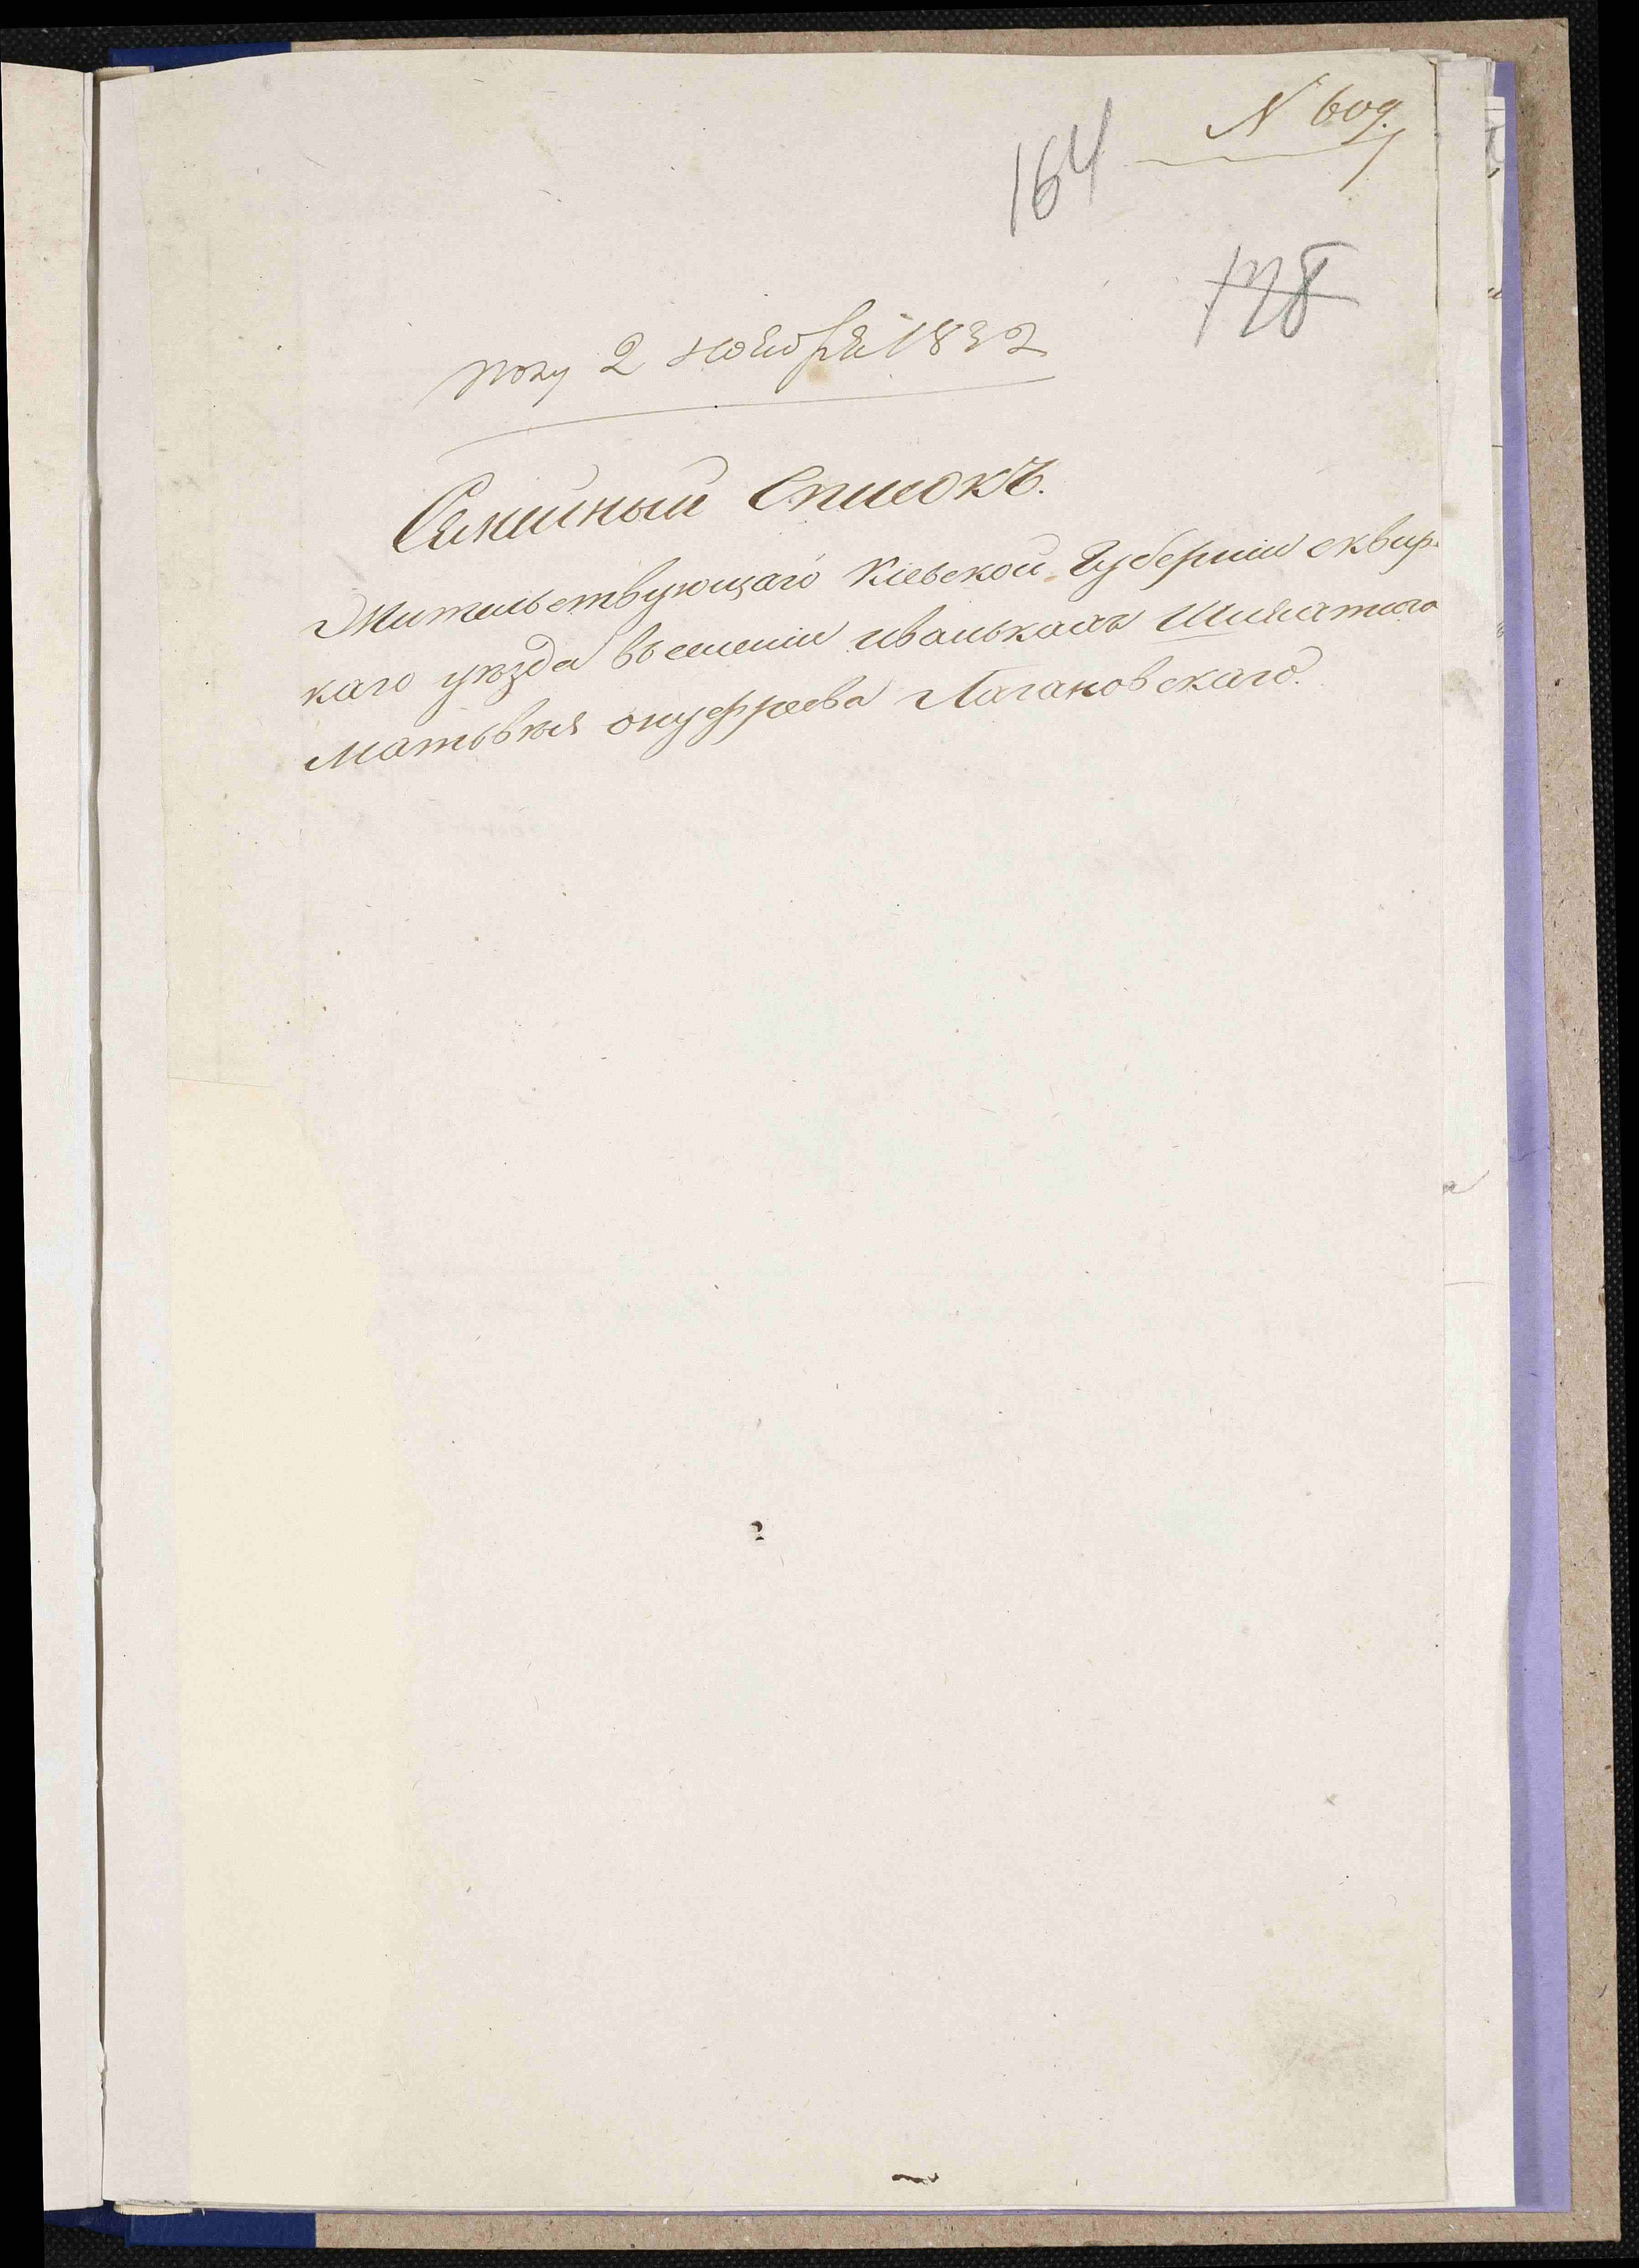 N 609.
164
178
полу 2 ноября 1832
Семийный Списокъ.
Жительствующаго Кіевской Губерніи сквир-
каго уѣзда въ селеніи иванькахъ Шляхтича
матьвѣя онуфреева Лагановскаго.